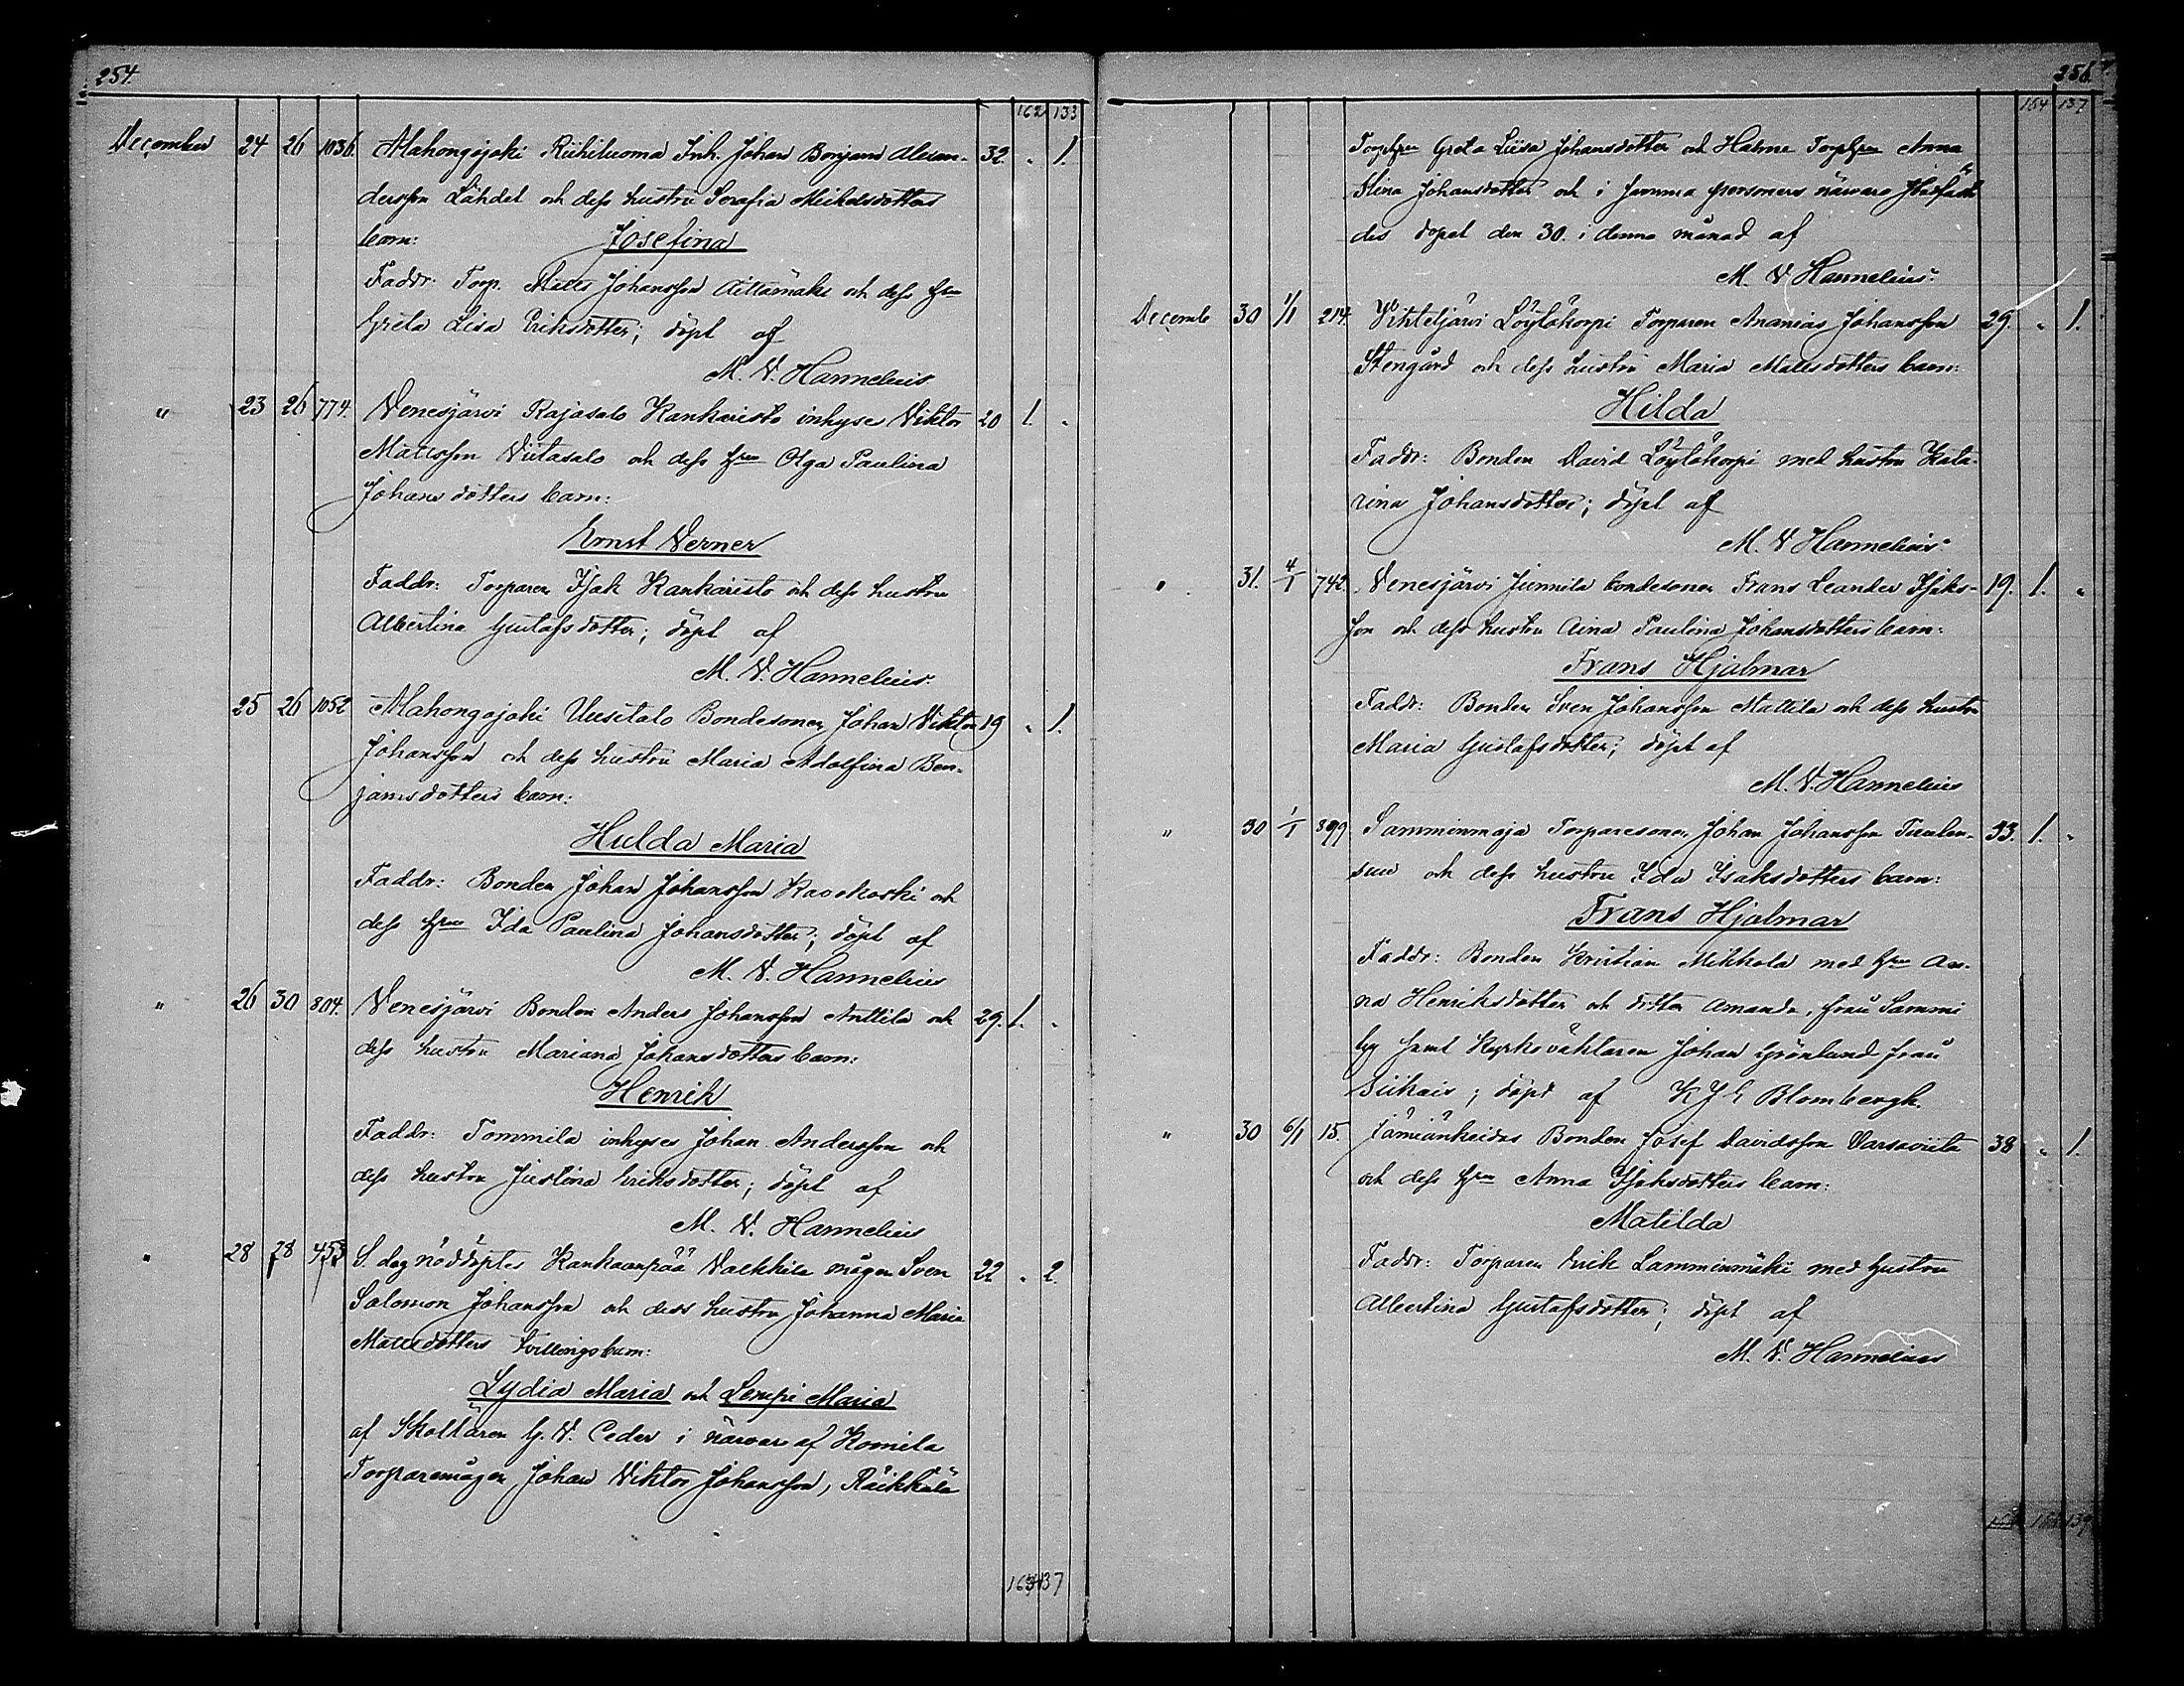 254.
162 133
December 24 26 1036. Mahongojoki Riihiluoma Inh. Johan Benjam Alexan- 32. " 1.
dersson Lähdet och dess hustru Serafia Mickelsdotters
barn: Josefina
Faddr: Torp. Matts Johansson Aittamäki och dess hru
Greta Lisa Eriksdotter; döpt af
M. V. Hannelius
" 23 26 774. Venesjärvi Rajasalo Kankaristo inhyses Viktor 20 1. "
Mattsson Viitasalo och dess hru Olga Paulina
Johansdotters barn:
Ernst Verner
Faddr: Torparen Isak Kankaristo och dess hustru
Albertina Gustafsdotter; döpt af
M. V. Hannelius.
25 26 1052 Mahongojoki Uusitalo Bondesonen Johan Viktor 19 " 1.
Johansson och dess hustru Maria Adolfina Ben-
jamsdotters barn:
Hulda Maria
Faddr: Bonden Johan Johansson och
dess hru Ida Paulina Johansdotter; döpt af
M. V. Hannelius
" 26 30 804. Venesjärvi Bonden Anders Johansson Anttila och 29. 1. "
dess hustru Mariana Johansdotters barn:
Henrik
Faddr: Tommila inhyses Johan Andersson och
dess hustru Justina Eriksdotter; döpt af
M. V. Hannelius
" 28 28 453 S. dag nöddöptes Kankaanpää Valkkila mågen Sven 22 " 2.
Salomon Johansson och dess hustru Johanna Maria
Mattsdotters tvillingsbarn:
Lydia Maria och Lempi Maria
af Skollären G. V. Ceder i närvaro af Komila
Torparemågen Johan Viktor Johansson, Räikkälä
137
256.
164 137
Torphru Greta Liisa Johansdotter och Halme Torphru Anna
Stina Johansdotter och i samma personers närvaro
des dopet den 30. i denna månad af
M. V. Hannelius.
Decemb 30 1/1 214. Vihteljärvi Löylökorpi Torparen Ananias Johansson 29. " 1.
Stengård och dess hustru Maria Mattsdotters barn:
Hilda
Faddr: Bonden David Löylökorpi med hustru Kata-
rina Johansdotter; döpt af
M. V. Hannelius.
" 31. 4/1 742. Venesjärvi Junnila bondesonen Frans Leander Isaks- 19. 1. "
son och dess hustru Aina Paulina Johansdotters barn:
Frans Hjalmar
Faddr: Bonden Sven Johansson Mattila och dess hustru
Maria Gustafsdotter; döpt af
M. V. Hannelius
" 30 1/1 399 Samminmaja Torparesonen Johan Johansson Tuulen- 33. 1. "
suu och dess hustru Ida Isaksdotters barn:
Frans Hjalmar
Faddr: Bonden Kristian Mikkola med hru An-
na Henriksdotter och dotter Amanda, från Sammi
by samt Kyrkoväktaren Johan Grönlund från
Siikais; döpt af K J G Blombergh.
" 30 6/1 15. Jämiänkeidas Bonden Josef Davidsson Varsaviita 38 " 1.
och dess hru Anna Isaksdotters barn:
Matilda
Faddr: Torparen Erik Lamminmäki med hustru
Albertina Gustafsdotter; döpt af
M. V. Hannelius
139